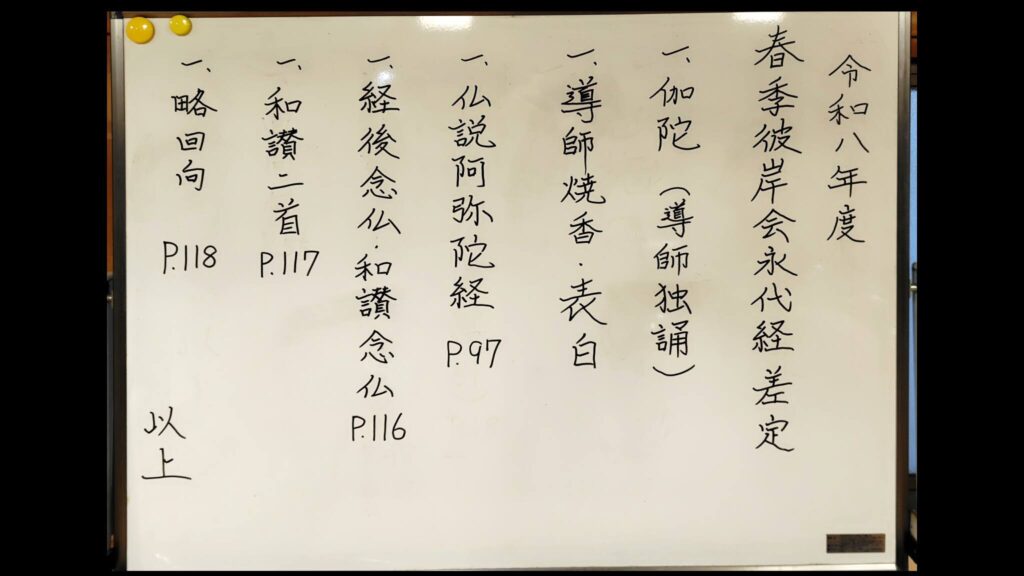 令和八年度
春季彼岸会永代経差定
一、伽陀（導師独誦）
一、導師焼香・表白
一、仏説阿弥陀経 P.97
一、経後念仏・和讃念仏 P.116
一、和讃二首 P.117
一、略回向 P.118
以上